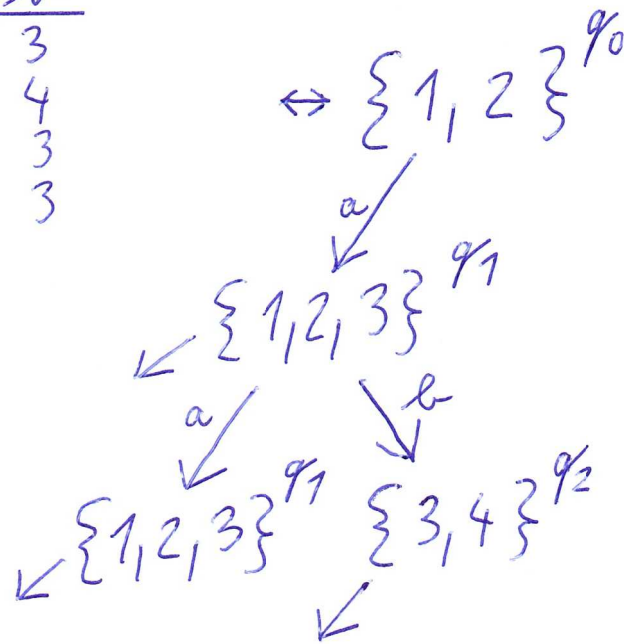 3
4
3
3
↔ {1, 2} q0
a
{1, 2, 3} q1
a
b
{1, 2, 3} q1
{3, 4} q2